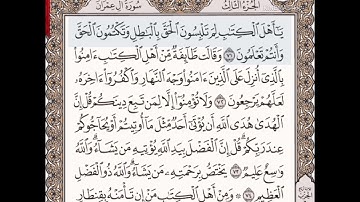 الجزء الثالث سورة آل عمران
يَٰٓأَهۡلَ ٱلۡكِتَٰبِ لِمَ تَلۡبِسُونَ ٱلۡحَقَّ بِٱلۡبَٰطِلِ وَتَكۡتُمُونَ ٱلۡحَقَّ
وَأَنتُمۡ تَعۡلَمُونَ ٧١ وَقَالَت طَّآئِفَةٞ مِّنۡ أَهۡلِ ٱلۡكِتَٰبِ ءَامِنُواْ
بِٱلَّذِيٓ أُنزِلَ عَلَى ٱلَّذِينَ ءَامَنُواْ وَجۡهَ ٱلنَّهَارِ وَٱكۡفُرُوٓاْ ءَاخِرَهُۥ
لَعَلَّهُمۡ يَرۡجِعُونَ ٧٢ وَلَا تُؤۡمِنُوٓاْ إِلَّا لِمَن تَبِعَ دِينَكُمۡ قُلۡ إِنَّ
ٱلۡهُدَىٰ هُدَى ٱللَّهِ أَن يُؤۡتَىٰٓ أَحَدٞ مِّثۡلَ مَآ أُوتِيتُمۡ أَوۡ يُحَآجُّوكُمۡ
عِندَ رَبِّكُمۡۗ قُلۡ إِنَّ ٱلۡفَضۡلَ بِيَدِ ٱللَّهِ يُؤۡتِيهِ مَن يَشَآءُۗ وَٱللَّهُ
وَٰسِعٌ عَلِيمٞ ٧٣ يَخۡتَصُّ بِرَحۡمَتِهِۦ مَن يَشَآءُۗ وَٱللَّهُ ذُو ٱلۡفَضۡلِ
ٱلۡعَظِيمِ ٧٤ وَمِنۡ أَهۡلِ ٱلۡكِتَٰبِ مَنۡ إِن تَأۡمَنۡهُ بِقِنطَارٖ